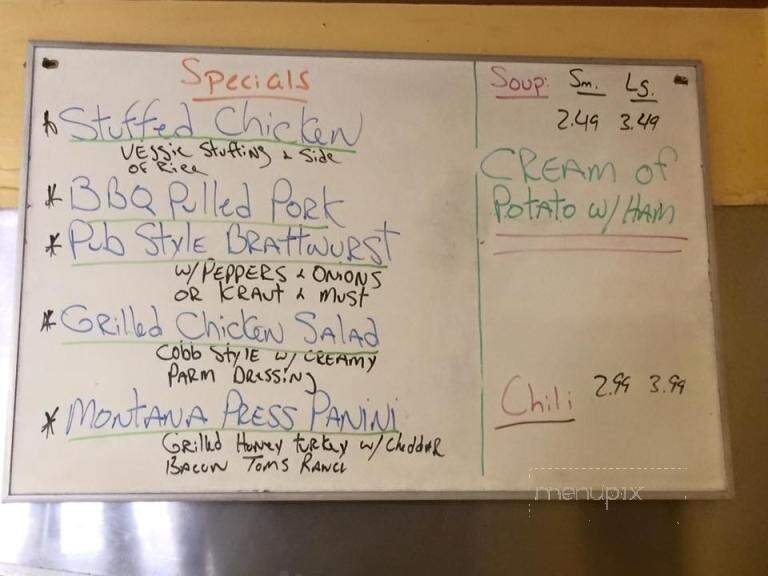 Specials
* Stuffed Chicken
Veggie Stuffing & Side
of Rice
* BBQ Pulled Pork
* Pub Style Brattwurst
w/ Peppers & Onions
or Kraut & Must
* Grilled Chicken Salad
Cobb Style w/ Creamy
Parm Dressing
* Montana Press Panini
Grilled Honey Turkey w/ Cheddar
Bacon Toms Ranch
Soup: Sm. Lg.
2.49 3.49
Cream of
Potato w/ Ham
Chili 2.99 3.99
menupix